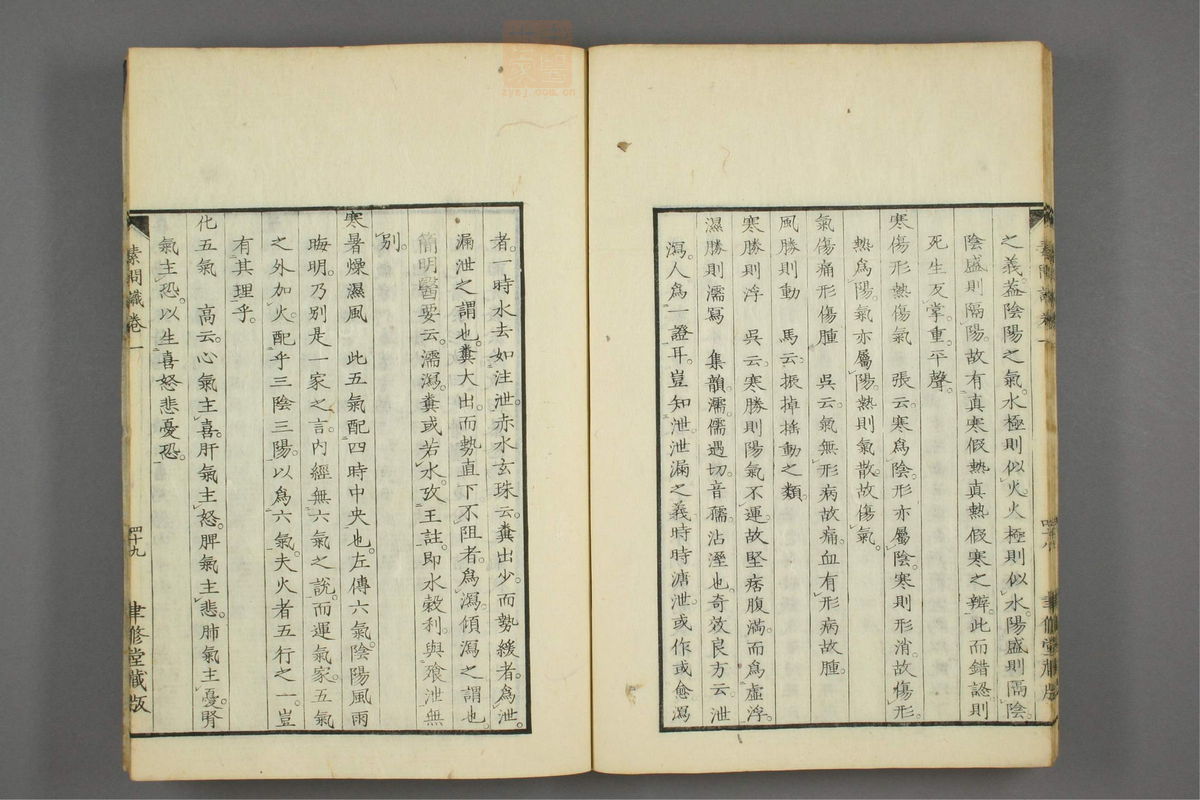 之義。葢陰陽之氣。水極則似火。火極則似水。陽盛則隔陰。
陰盛則隔陽。故有真寒假熱真熱假寒之辨。此而錯認則
死生反掌。重。平聲。
寒傷形熱傷氣　張云。寒爲陰。形亦屬陰。寒則形消。故傷形。
熱爲陽。氣亦屬陽。熱則氣散。故傷氣。
氣傷痛形傷腫　吳云。氣無形病故痛。血有形病故腫。
風勝則動　馬云。振掉搖動之類。
寒勝則浮　吳云。寒勝則陽氣不運。故堅痞腹滿。而爲虛浮。
濕勝則濡寫　集韻。濡。儒遇切。音孺。沾溼也。奇效良方云。泄
瀉。人爲一證耳。豈知泄泄漏之義。時時溏泄。或作或愈。瀉
素問識卷一
聿修堂藏版
者。一時水去如注泄。赤水玄珠云。糞出少。而勢緩者。爲泄。
漏泄之謂也。糞大出。而勢直下不阻者。爲瀉。傾瀉之謂也
簡明醫要云。濡瀉。糞或若水。攷王註。即水穀利。與飱泄無
別。
寒暑燥濕風　此五氣配四時中央也。左傳六氣。陰陽風雨
晦明。乃別是一家之言。內經無六氣之說。而運氣家。五氣
之外加火。配乎三陰三陽。以爲六氣。夫火者五行之一。豈
有其理乎。
化五氣　高云。心氣主喜。肝氣主怒。脾氣主悲。肺氣主憂。腎
氣主恐。以生喜怒悲憂恐。
素問識卷一
四十九
聿修堂藏版